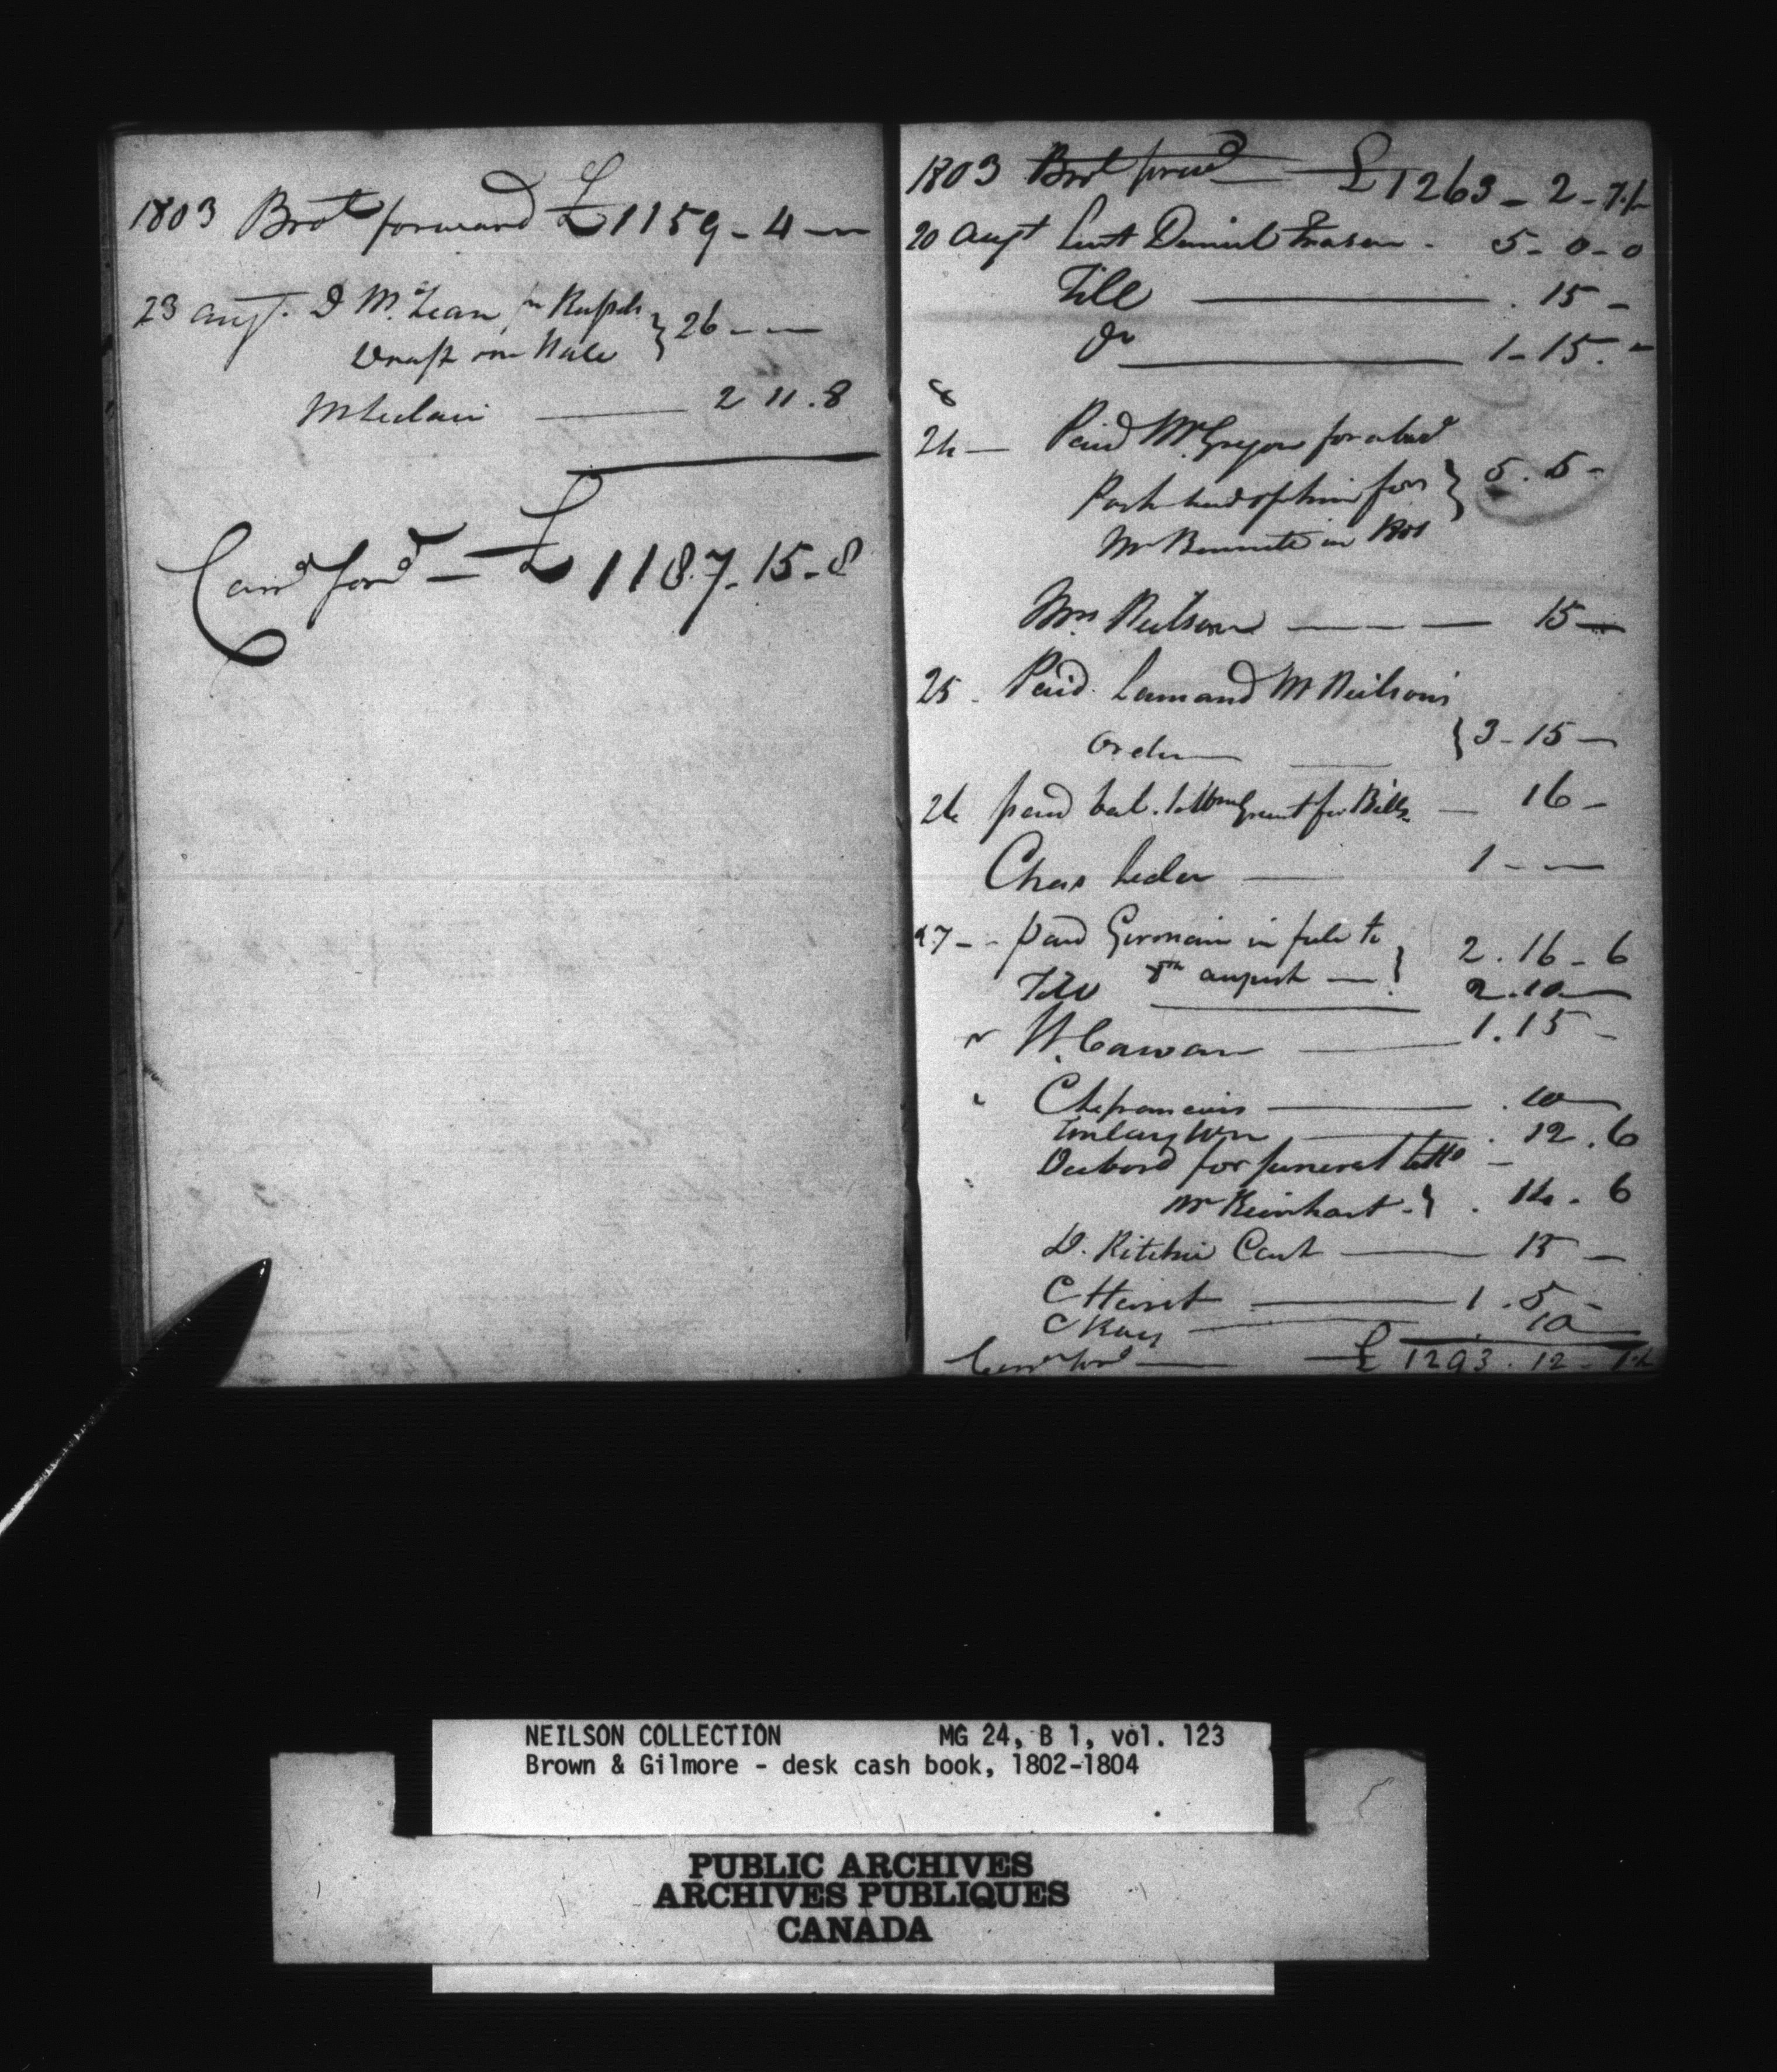 1803 Brot forward £1159 - 4 -
23 augt. D McLean for
Draft on Hale } 26 - -
2 11. 8
Carrd forwd - £ 1187. 15 - 8
1803 Brot forwd £1263 - 2 - 7½
20 augt Lieut Daniel Fraser - 5 - 0 - 0
Till . 15 -
Do 1 - 15. -
24 - Paid McGregor for a bad
had of him for } 5. 5 -
Mr Bennett in 1801
Mrs Neilson 15 -
25 - Paid Lamand Mr Neilson's
Order } 3 - 15 -
26 paid bal. to Wm Grant for Bills - 16 -
Chas 1 - -
27 - - paid Germain in full to
8th august } 2. 16 - 6
2. 10 -
W. Cowan 1. 15 -
C Lefrancois . 10 -
. 12. 6
for funeral
Mr Reinhart - } . 14. 6
D. Ritchie 15 -
C Hurst 1. 5 -
C Kay 10
Carrd forwd £ 1293. 12 - 1½
NEILSON COLLECTION MG 24, B 1, vol. 123
Brown & Gilmore - desk cash book, 1802-1804
PUBLIC ARCHIVES
ARCHIVES PUBLIQUES
CANADA